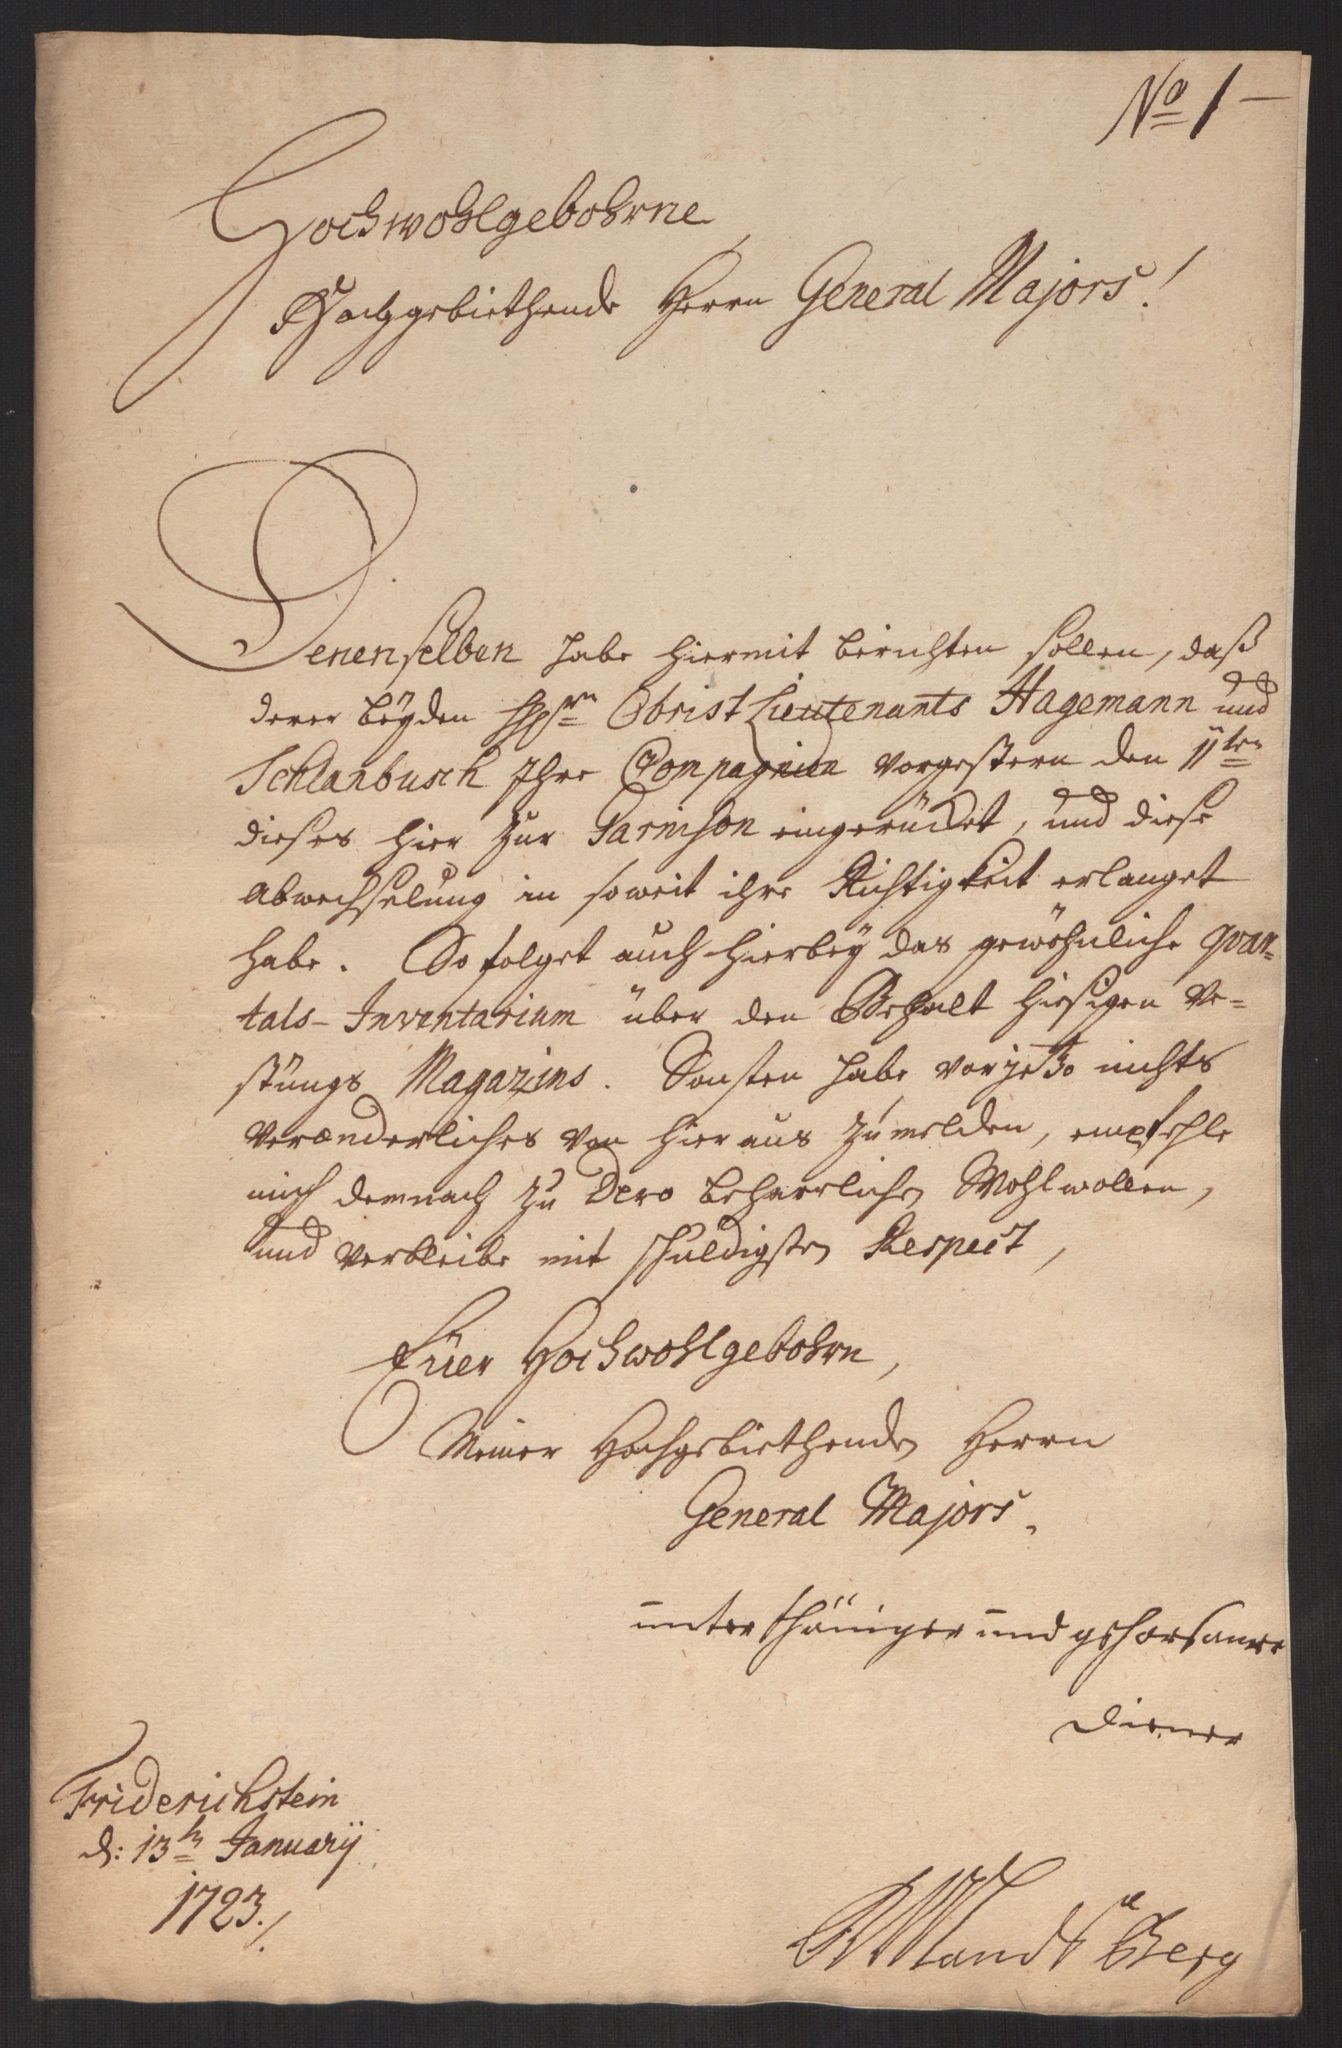 No 1
Hochwohlgebohrne
Hochgebiethende Herrn General Majors!
Denenselben habe hiermit berichten sollen, daß
derer beÿden HHrn Obrist Lieutenants Hagemann und
Schlanbusch Ihre Compagnien vorgestern den 11ten
dieses hier zur Garnison eingerücket, und diese
Abwechselung in soweit ihre Richtigkeit erlanget
habe. So folget auch hierbeÿ das gewöhnliche quar-
tals-Inventarium über den Behalt hiesigen Ve-
stungs Magazins. Sonsten habe vor jetzo nichts
veränderliches von hier aus zu melden, empfehle
mich demnach zu Dero beharrlichen Wohlwollen,
und verbleibe mit schuldigsten Respect,
Euer Hochwohlgebohrn,
Meiner Hochgebiethenden Herrn
General Majors.
unterthäniger und gehorsamer
Diener
Friderichstein
d: 13ten Januarÿ
1723.
Landsberg